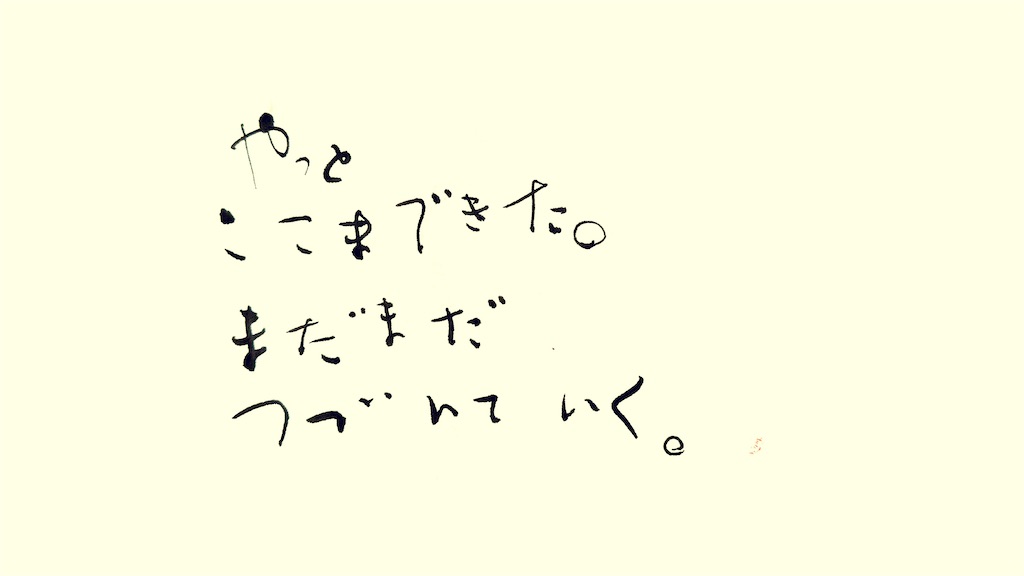 やっと
ここまできた。
まだまだ
つづいて いく。